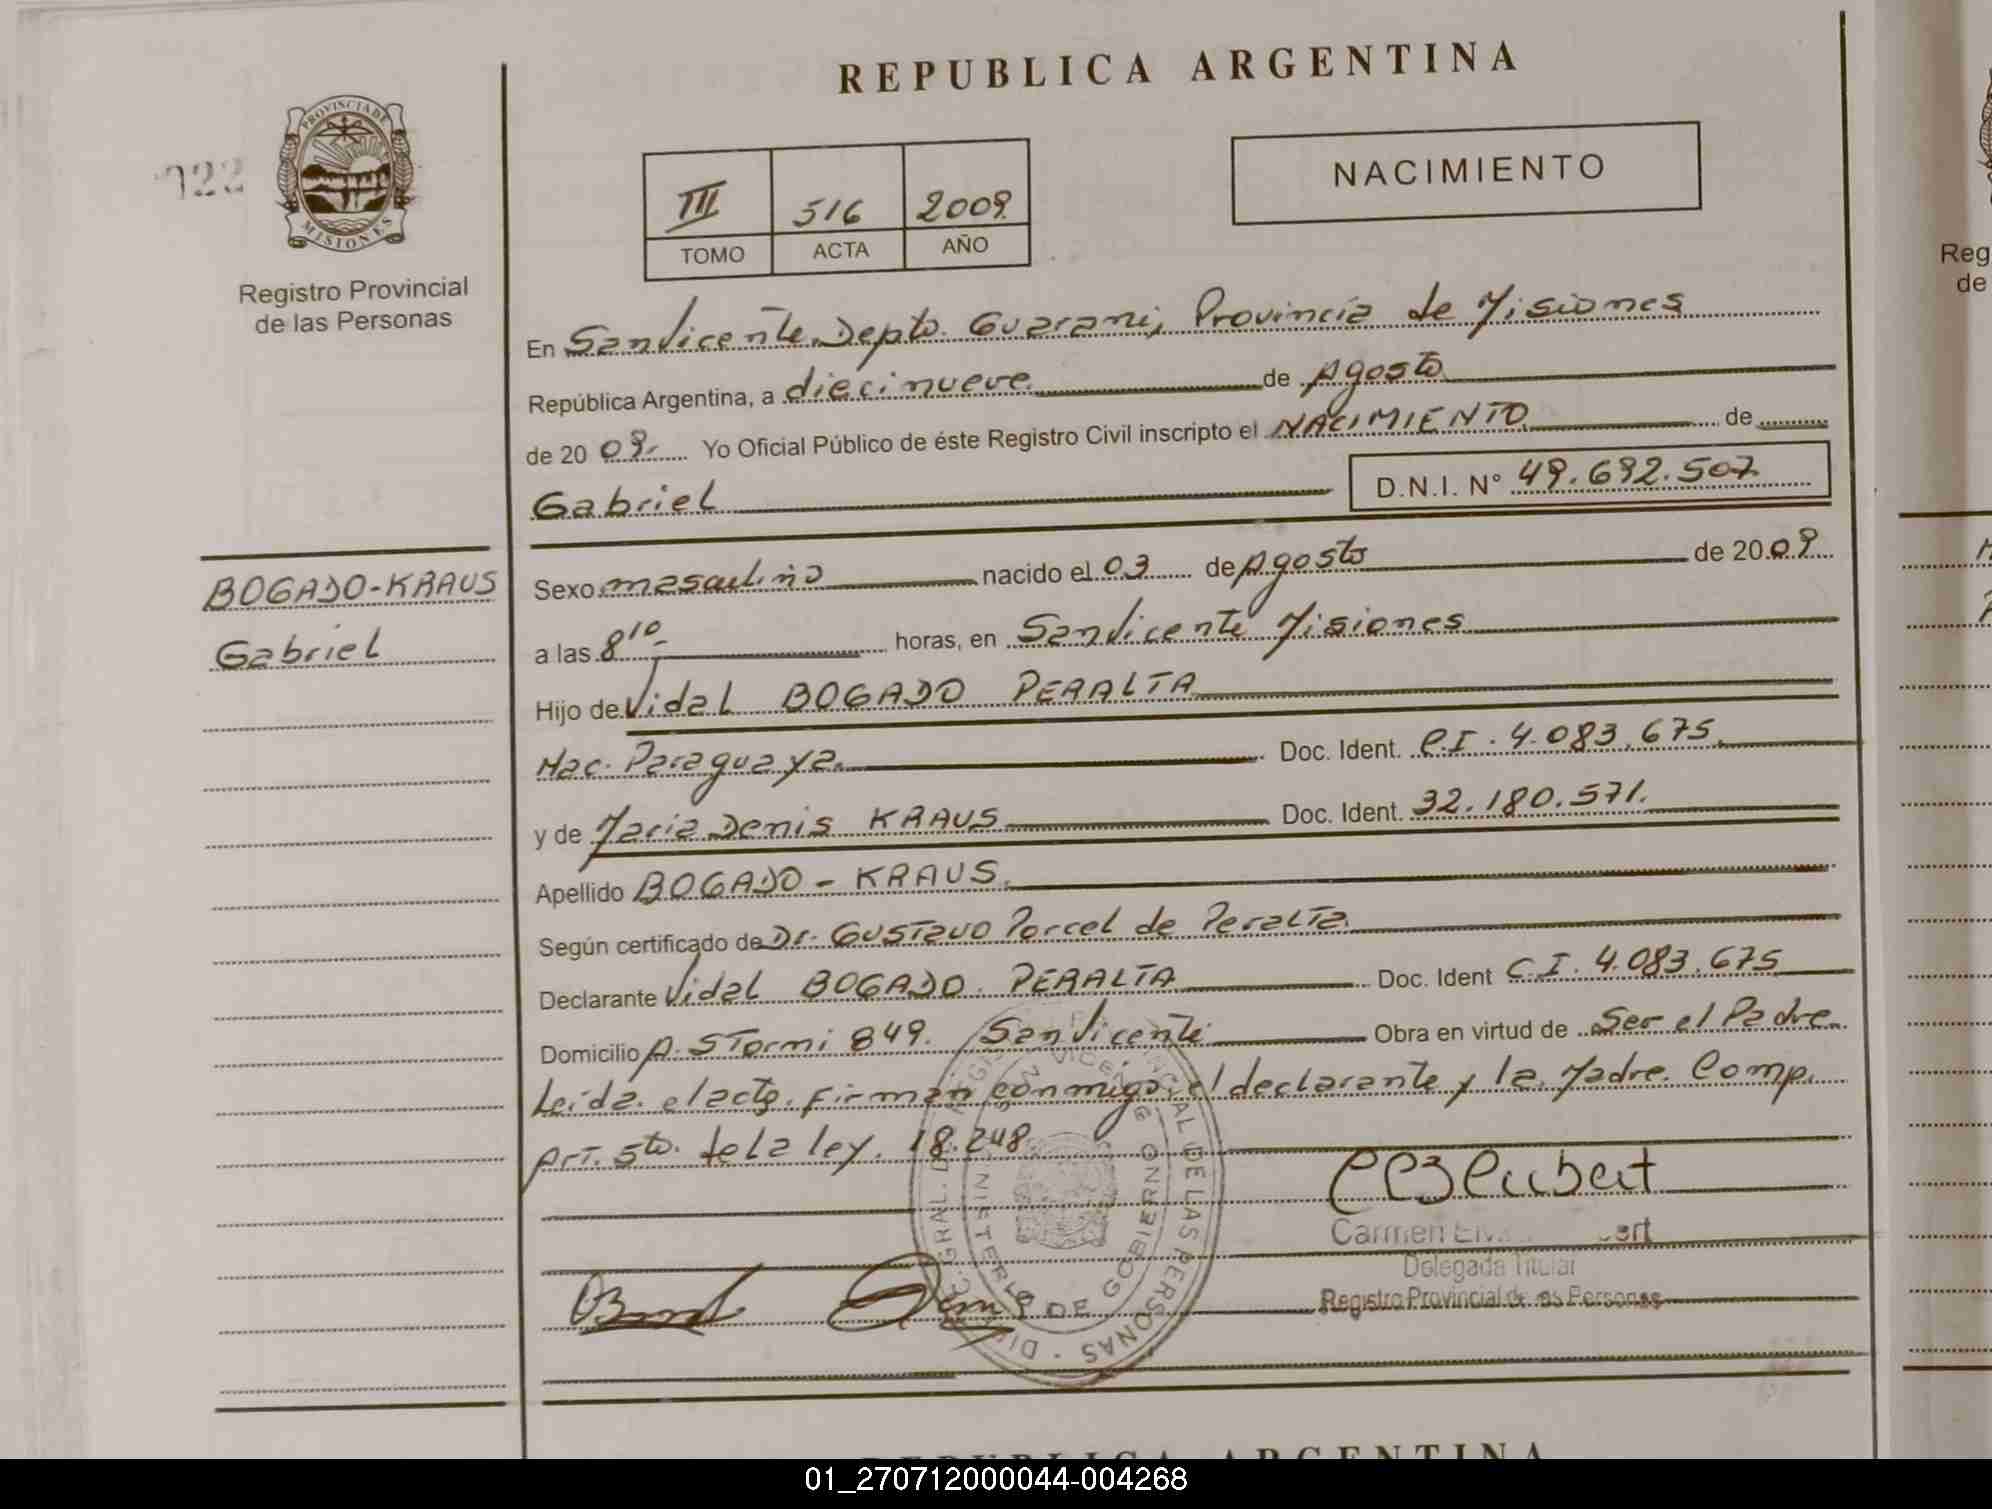 REPUBLICA ARGENTINA
122
PROVINCIA DE
MISIONES
Registro Provincial
de las Personas
III 516 2009
TOMO ACTA AÑO
NACIMIENTO
En San Vicente, Depto. Guarani, Provincia de Misiones
República Argentina, a diecinueve de Agosto
de 2009. Yo Oficial Público de éste Registro Civil inscripto el NACIMIENTO de
Gabriel D.N.I. N° 49.692.507
BOGADO-KRAUS
Gabriel
Sexo masculino nacido el 03 de Agosto de 2009
a las 8 10 horas, en San Vicente Misiones
Hijo de Vidal BOGADO PERALTA
Nac. Paraguaya. Doc. Ident. C.I. 4.083.675.
y de Maria Denis KRAUS Doc. Ident. 32.180.571.
Apellido BOGADO - KRAUS.
Según certificado de Dr. Gustavo Porcel de Peralta.
Declarante Vidal BOGADO PERALTA Doc. Ident C.I. 4.083.675
Domicilio A. Stormi 849. San Vicente Obra en virtud de Ser el Padre.
Leida el acta, firman conmigo el declarante y la Madre. Comp.
Art. 5to. de la ley. 18.248
Carmen
Delegada Titular
Registro Provincial de las Personas
DIREC. GRAL. DEL REGISTRO PROVINCIAL DE LAS PERSONAS
MINISTERIO DE GOBIERNO
SAN VICENTE
REPUBLICA ARGENTINA
Reg
de
01_270712000044-004268